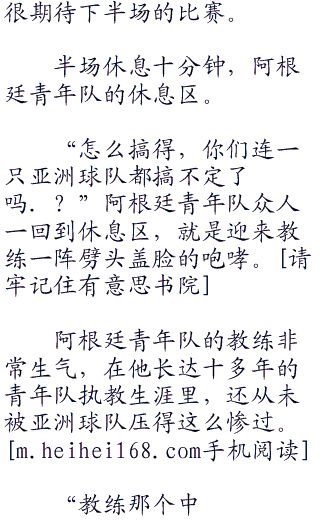 很期待下半场的比赛。
半场休息十分钟，阿根
廷青年队的休息区。
“怎么搞得，你们连一
只亚洲球队都搞不定了
吗．？”阿根廷青年队众人
一回到休息区，就是迎来教
练一阵劈头盖脸的咆哮。[请
牢记住有意思书院]
阿根廷青年队的教练非
常生气，在他长达十多年的
青年队执教生涯里，还从未
被亚洲球队压得这么惨过。
[m.heihei168.com手机阅读]
“教练那个中